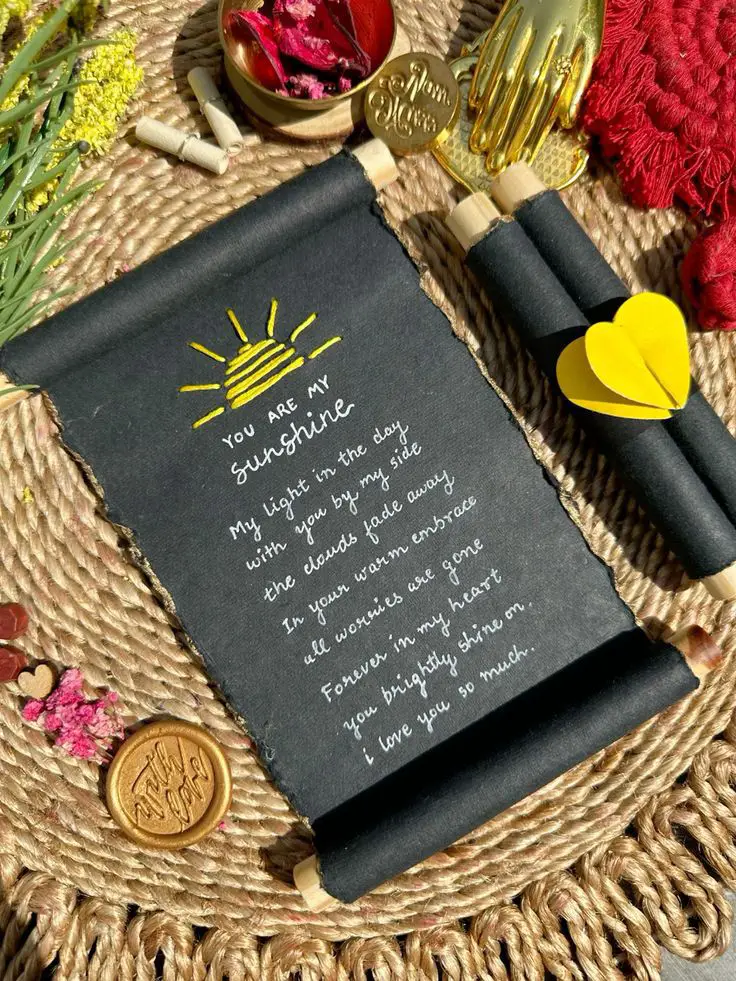 YOU ARE MY
sunshine
My light in the day
with you by my side
the clouds fade away
In your warm embrace
all worries are gone
Forever in my heart
you brightly shine on.
i love you so much.
with love